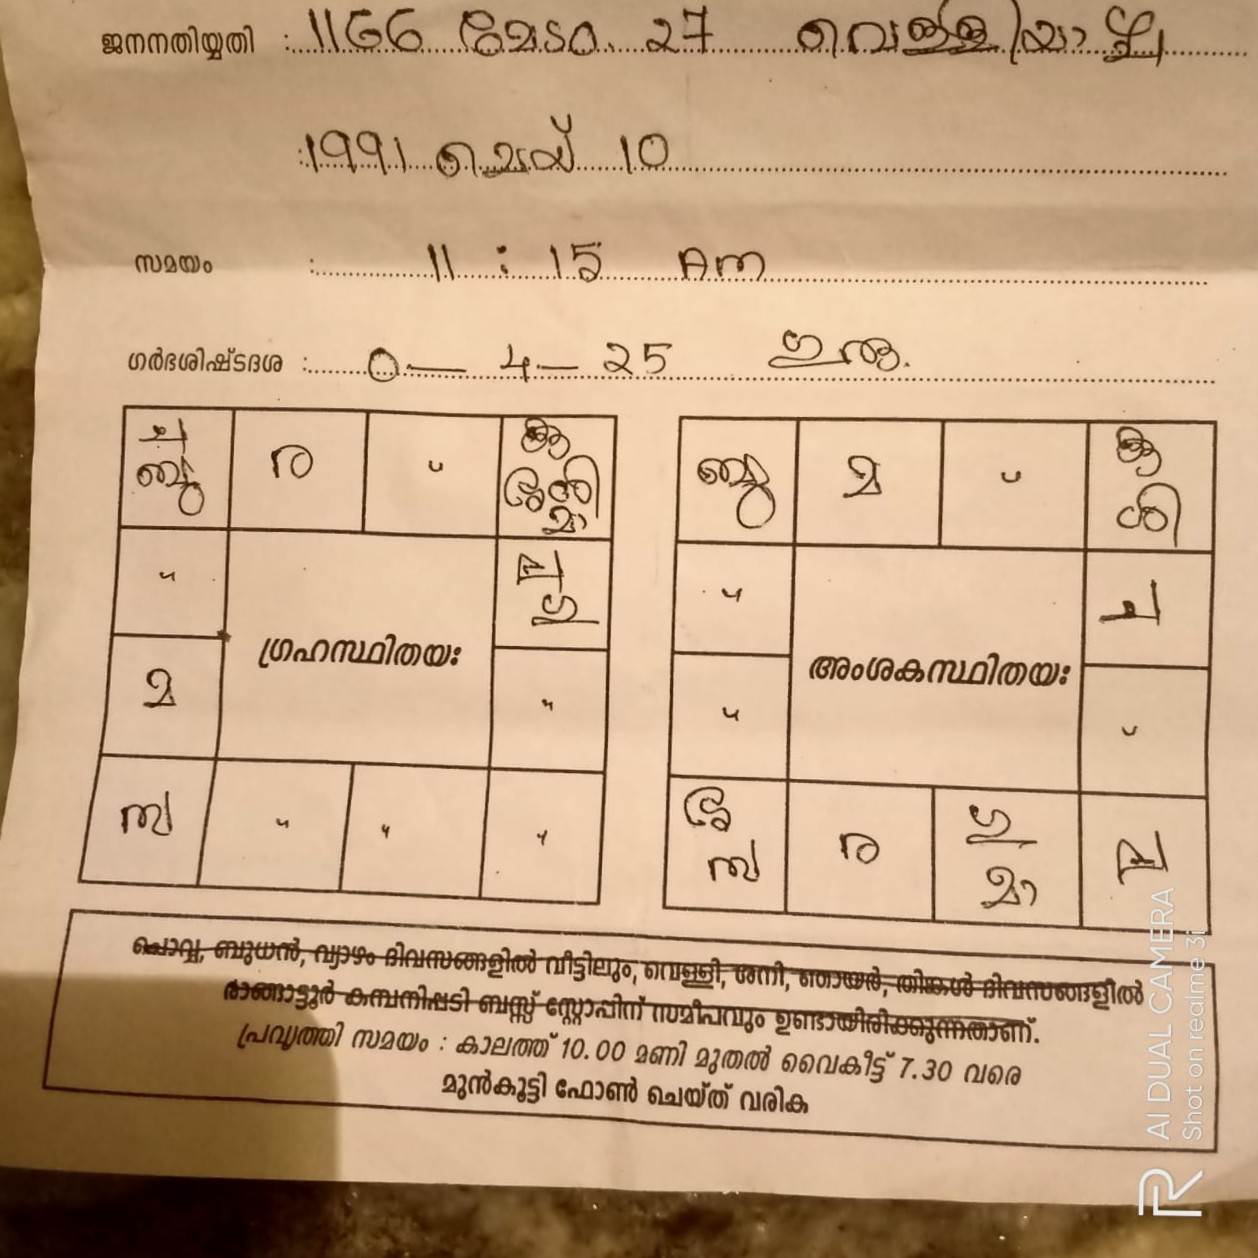 ജനനതിയ്യതി : 1166 മേടം 27 വെള്ളിയാഴ്ച
: 1991 മെയ് 10
സമയം : 11 : 15 Am
ഗർഭശിഷ്ടദശ : 0 — 4 — 25 ഗുരു.
ച ര " 
ബു
" 
ഗ്രഹസ്ഥിതയഃ
മ "
സ " " "
ബു മ " 
ശി
" ച
അംശകസ്ഥിതയഃ
" "
സ ര മാ
ചൊവ്വ, ബുധൻ, വ്യാഴം ദിവസങ്ങളിൽ വീട്ടിലും, വെള്ളി, ശനി, ഞായർ, തിങ്കൾ ദിവസങ്ങളിൽ
രാങ്ങാട്ടൂർ കമ്പനിപ്പടി ബസ്സ് സ്റ്റോപ്പിന് സമീപവും ഉണ്ടായിരിക്കുന്നതാണ്.
പ്രവൃത്തി സമയം : കാലത്ത് 10.00 മണി മുതൽ വൈകീട്ട് 7.30 വരെ
മുൻകൂട്ടി ഫോൺ ചെയ്ത് വരിക
AI DUAL CAMERA
Shot on realme 3i